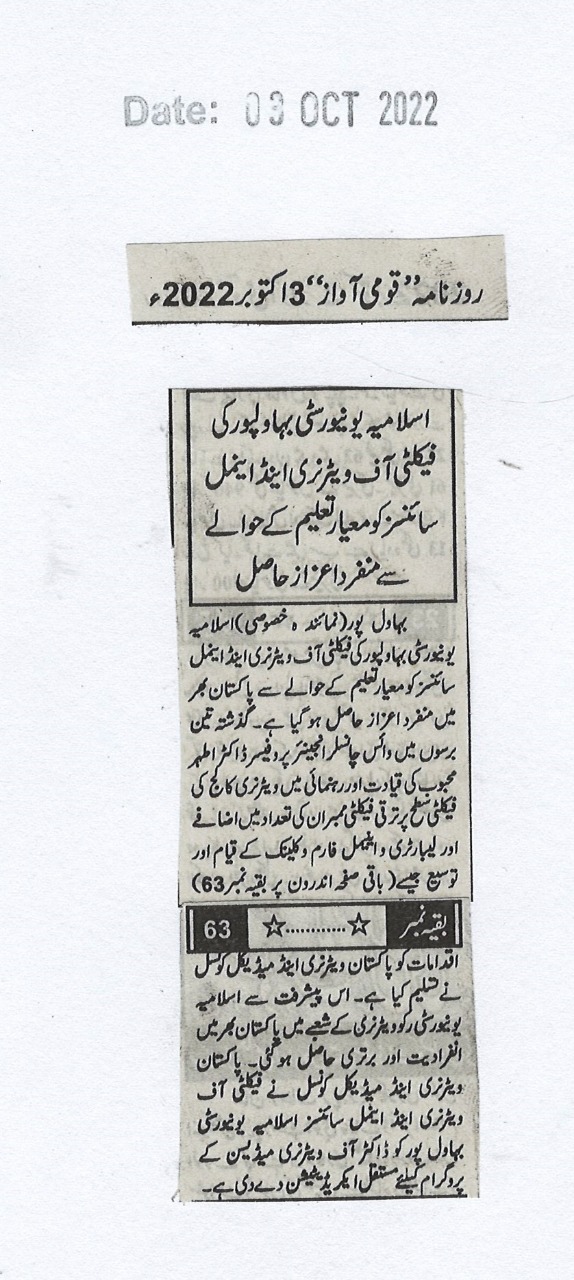 Date: 03 OCT 2022
روزنامہ ”قومی آواز“ 3 اکتوبر 2022ء
اسلامیہ یونیورسٹی بہاولپور کی
فیکلٹی آف ویٹرنری اینڈ اینمل
سائنسز کو معیار تعلیم کے حوالے
سے منفرد اعزاز حاصل
بہاول پور (نمائندہ خصوصی) اسلامیہ
یونیورسٹی بہاولپور کی فیکلٹی آف ویٹرنری اینڈ اینمل
سائنسز کو معیار تعلیم کے حوالے سے پاکستان بھر
میں منفرد اعزاز حاصل ہو گیا ہے۔ گذشتہ تین
برسوں میں وائس چانسلر انجینئر پروفیسر ڈاکٹر اطہر
محبوب کی قیادت اور رہنمائی میں ویٹرنری کالج کی
فیکلٹی سطح پر ترقی فیکلٹی ممبران کی تعداد میں اضافے
اور لیبارٹری و اینیمل فارم و کلینک کے قیام اور
توسیع جیسے (باقی صفحہ اندرون پر بقیہ نمبر 63)
بقیہ نمبر ☆............☆ 63
اقدامات کو پاکستان ویٹرنری اینڈ میڈیکل کونسل
نے تسلیم کیا ہے۔ اس پیشرفت سے اسلامیہ
یونیورسٹی رکو ویٹرنری کے شعبے میں پاکستان بھر میں
انفرادیت اور برتری حاصل ہو گئی۔ پاکستان
ویٹرنری اینڈ میڈیکل کونسل نے فیکلٹی آف
ویٹرنری اینڈ اینمل سائنسز اسلامیہ یونیورسٹی
بہاول پور کو ڈاکٹر آف ویٹرنری میڈیسن کے
پروگرام کیلئے مستقل ایکریڈیٹیشن دے دی ہے۔